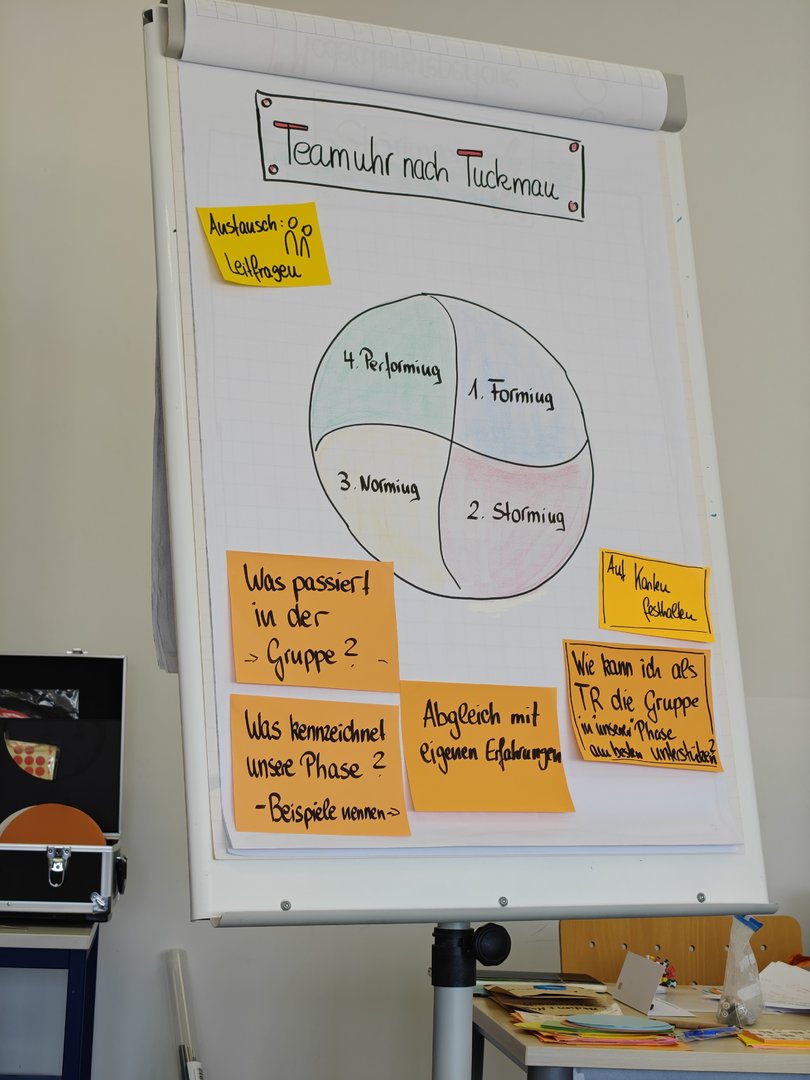 Teamuhr nach Tuckman
Austausch:
Leitfragen
4. Performing
1. Forming
3. Norming
2. Storming
Auf Karten
festhalten
Was passiert
in der
-> Gruppe? -
Wie kann ich als
TR die Gruppe
in "unserer" Phase
am besten unterstützen?
Was kennzeichnet
unsere Phase?
- Beispiele nennen ->
Abgleich mit
eigenen Erfahrungen